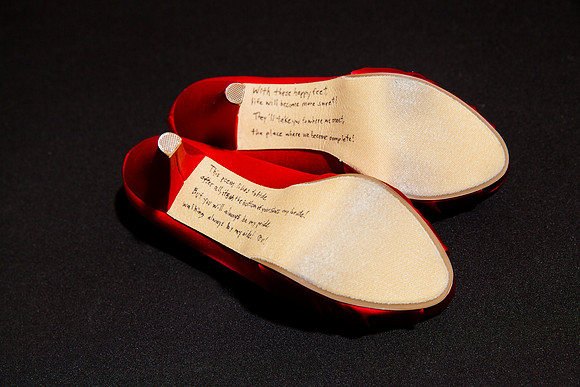 With these happy feet,
life will become more sweet!
They'll take you to where we meet,
the place where we become complete!
This poem likes to hide
after all, it's at the bottom of your shoes my bride!
But you will always be my pride
walking always by my side!